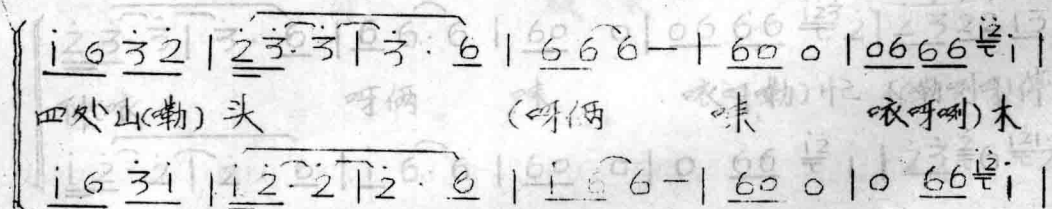 i̇ 6 3̇ 2̇ | 2̇ 3̇·3̇ | 3̇· 6 | 6 6 6 — | 6 0 0 | 0 6 6 6 i̇2̇ i̇ |
四处山(嘞)头 (呀俩 唻 衣呀唎)木
i̇ 6 3̇ i̇ | i̇ 2̇·2̇ | 2̇· 6 | i̇ 6 6 — | 6 0 0 | 0 6 6 i̇2̇ i̇ |